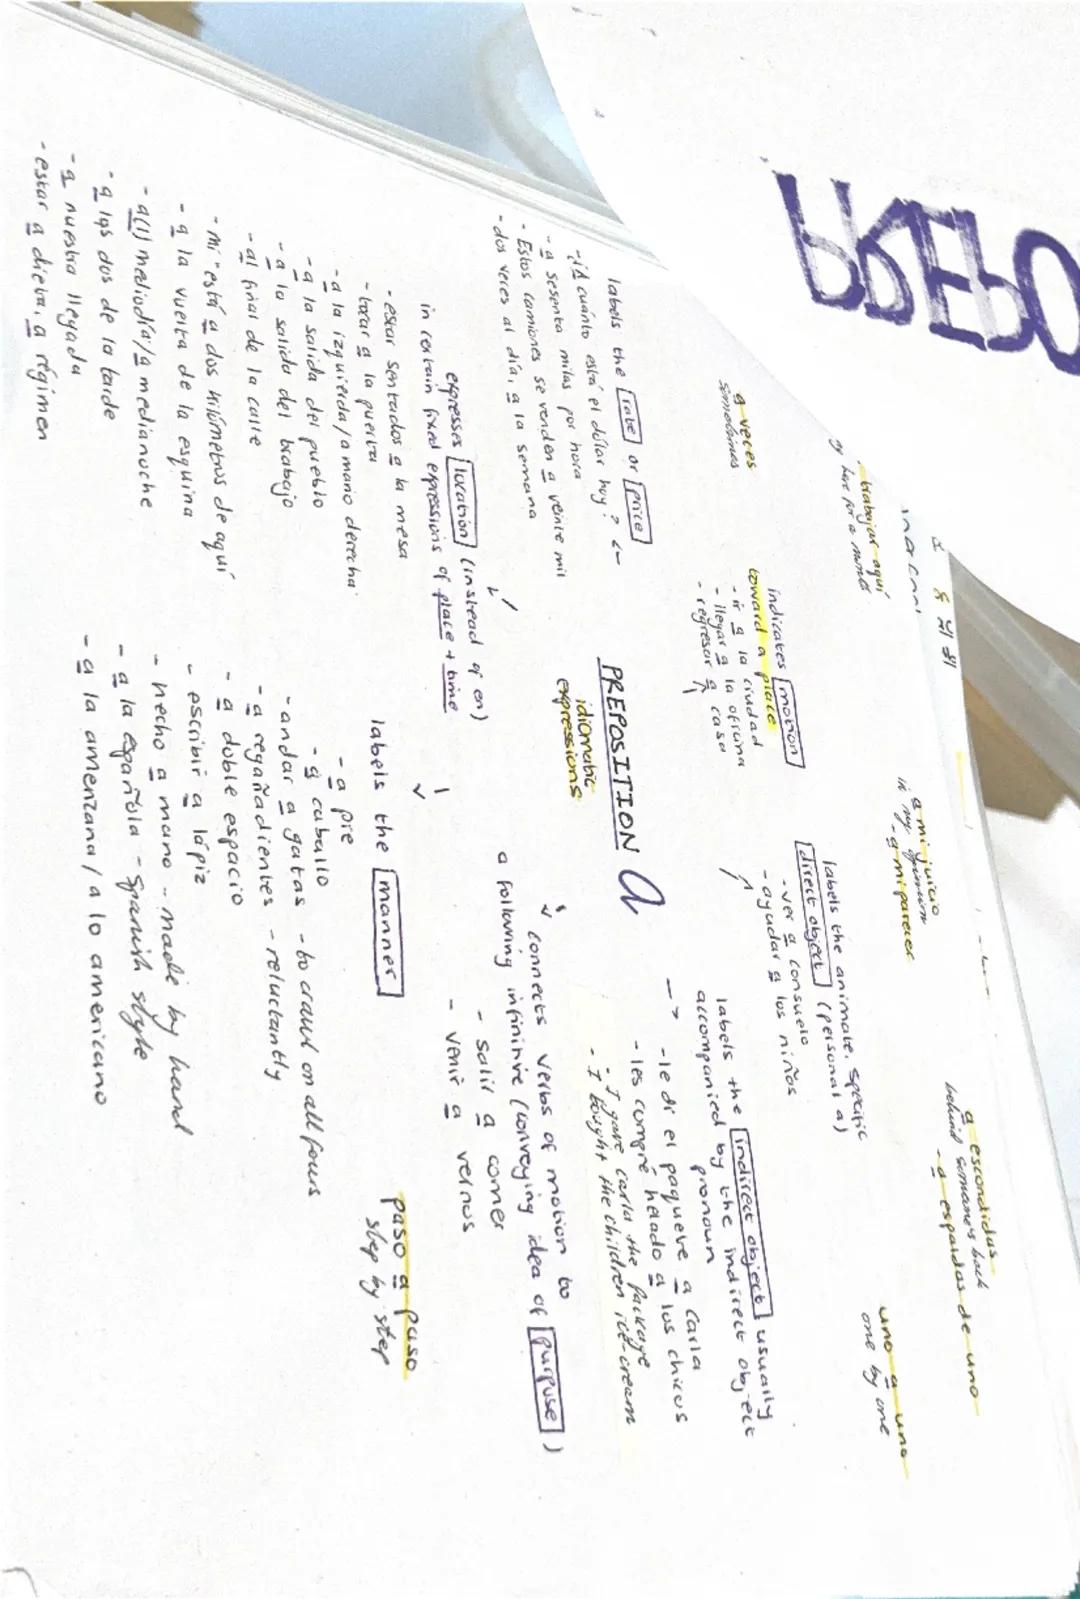 a escondidas
behind someone's back
- a espaldas de uno
a mi juicio
in my opinion
- a mi parecer
uno a uno
one by one
trabajar aquí
a veces
sometimes
indicates motion
toward a place
- ir a la ciudad
- llegar a la oficina
- regresar a casa
labels the animate, specific
direct object (personal a)
- ver a Consuelo
- ayudar a los niños
labels the rate or price
- ¿A cuánto está el dólar hoy?
- a sesenta milas por hora
- Estos camiones se venden a veinte mil
- dos veces al día, a la semana
PREPOSITION a
idiomatic
expressions
labels the indirect object usually
accompanied by the indirect object
pronoun
- le di el paquete a Carla
- les compré helado a los chicos
- I gave Carla the package
- I bought the children ice-cream
connects verbs of motion to
a following infinitive (conveying idea of purpose)
- salir a comer
- venir a vernos
expresses location (instead of en)
in certain fixed expressions of place + time
- estar sentados a la mesa
- tocar a la puerta
- a la izquierda / a mano derecha
- a la salida del pueblo
- a la salida del trabajo
- al final de la calle
- mi está a dos kilómetros de aquí
- a la vuelta de la esquina
- a(l) mediodía / a medianoche
- a las dos de la tarde
- a nuestra llegada
- estar a dieta, a régimen
labels the manner
- a pie
- a caballo
- andar a gatas - to crawl on all fours
- a regañadientes - reluctantly
- a doble espacio
- escribir a lápiz
- hecho a mano - made by hand
- a la española - Spanish style
- a la americana / a lo americano
paso a paso
step by step